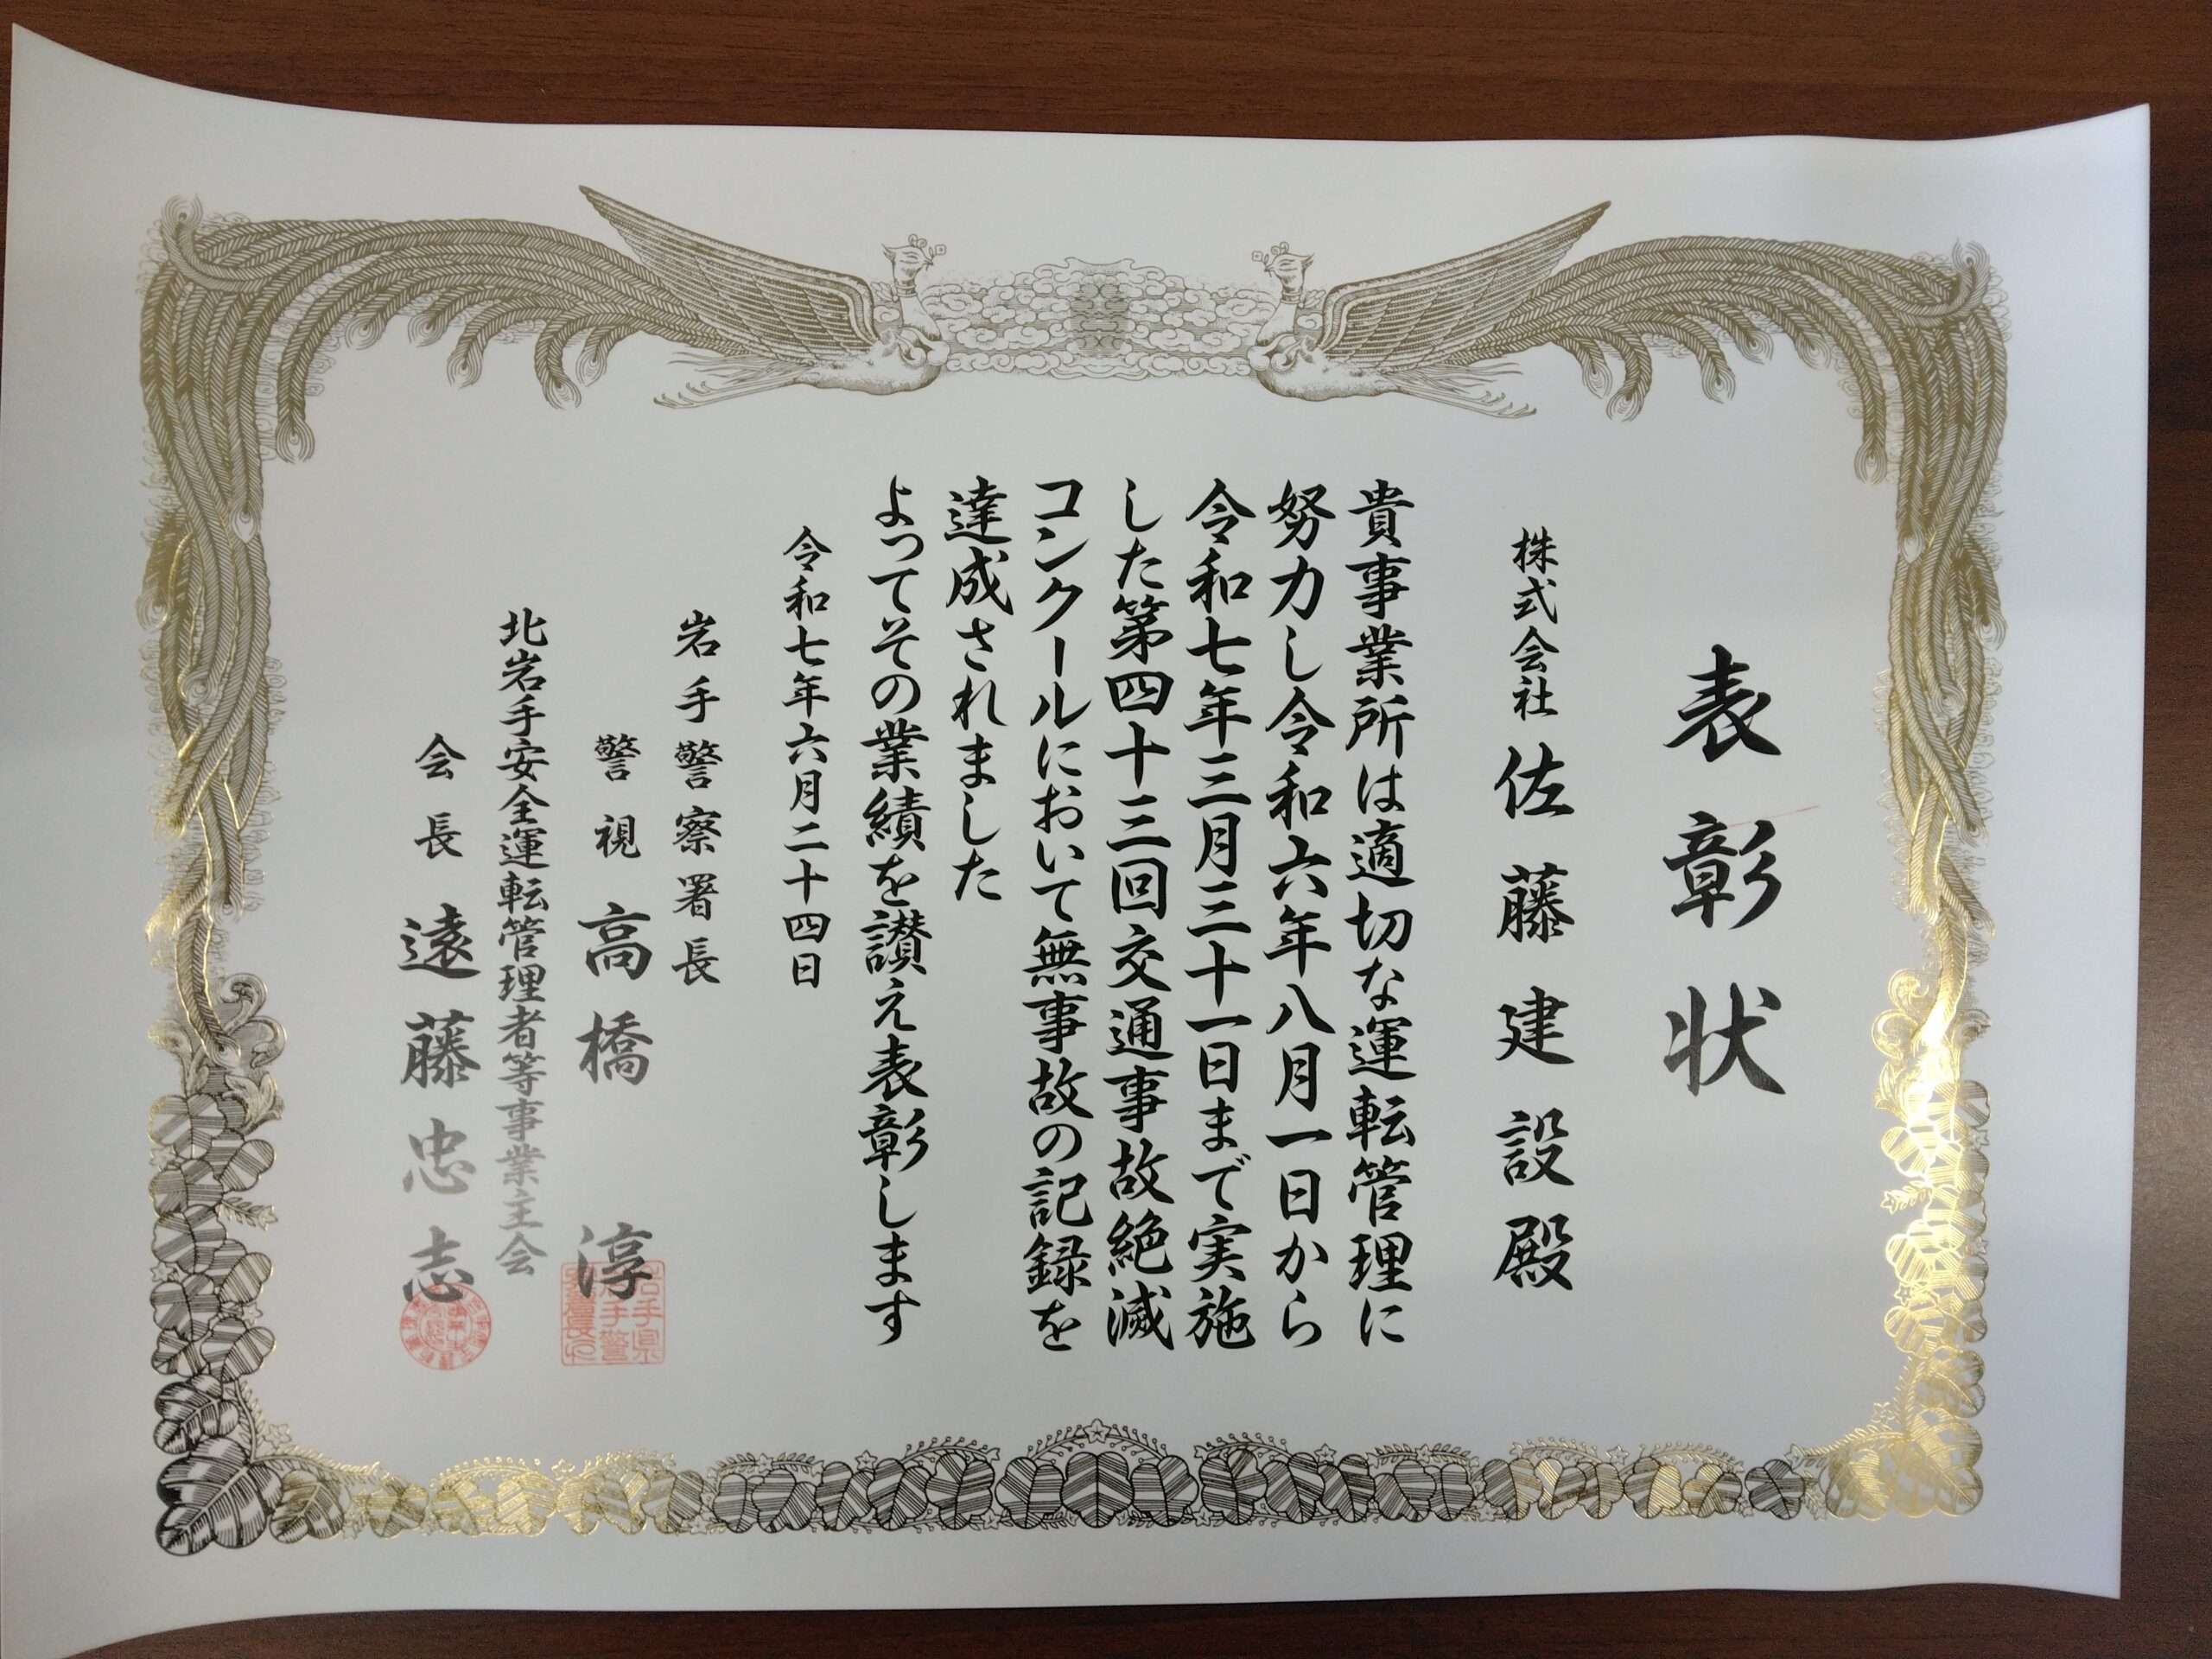 表彰状
株式会社 佐藤建設殿
貴事業所は適切な運転管理に
努力し令和六年八月一日から
令和七年三月三十一日まで実施
した第四十三回交通事故絶滅
コンクールにおいて無事故の記録を
達成されました
よってその業績を讃え表彰します
令和七年六月二十四日
岩手警察署長
警視 高橋 淳
北岩手安全運転管理者等事業主会
会長 遠藤忠志